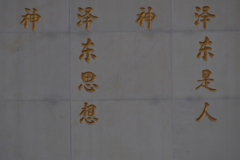 泽东是人
神
泽东思想
神